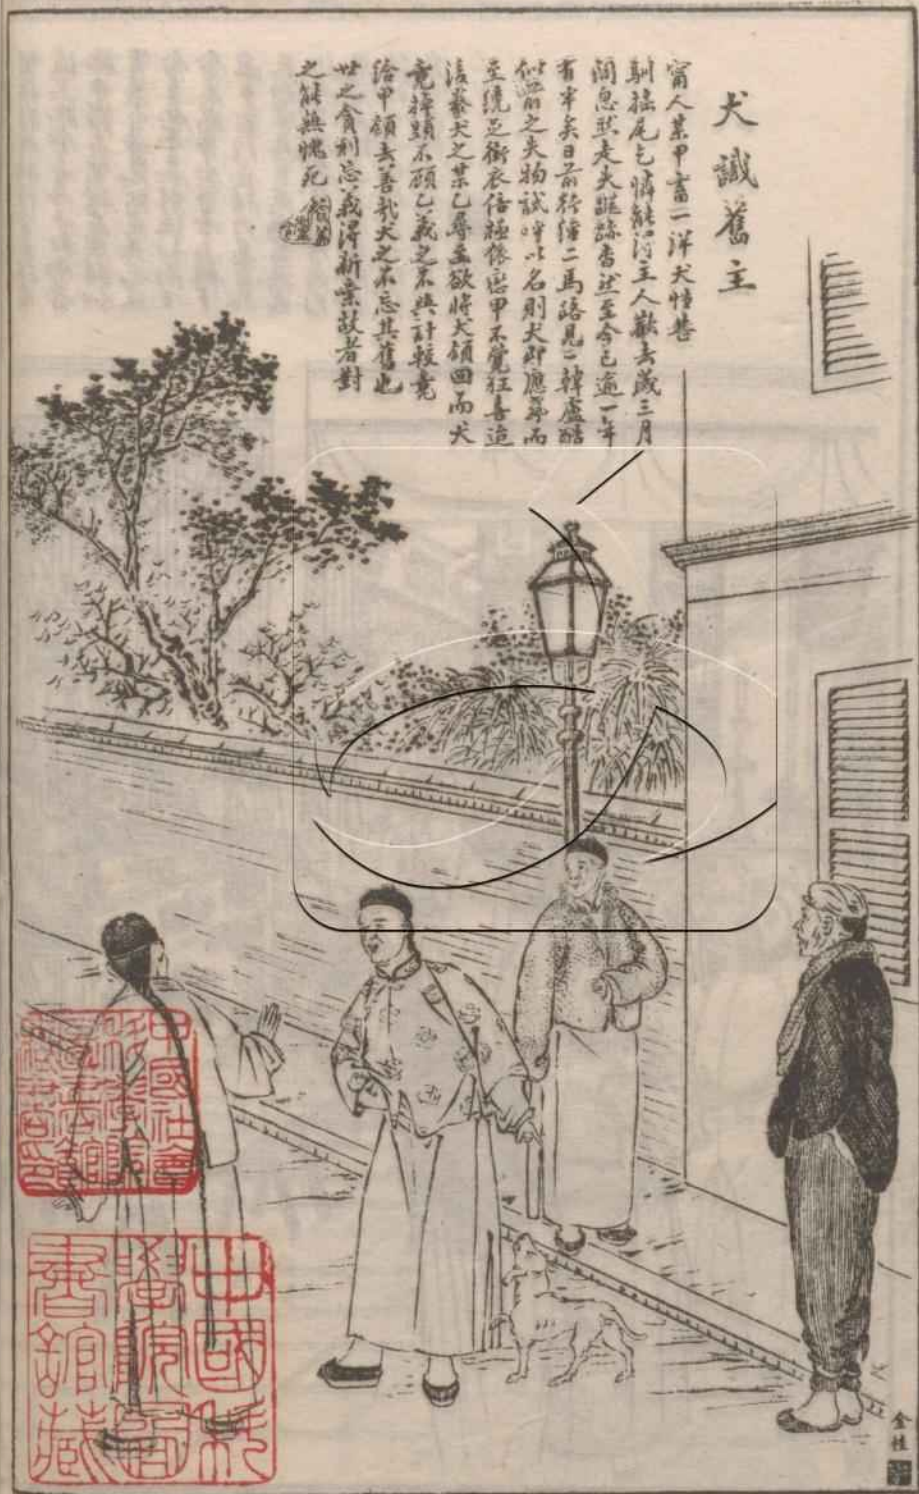 犬識舊主
甯人某甲畜一洋犬性甚
馴搖尾乞憐能得主人歡去歲三月
間忽然走失蹤跡杳然至今已逾一年
有半矣日前行經二馬路見一韓盧酷
似前之失物試呼以名則犬即應聲而
至繞足銜衣倍極依戀甲不覺狂喜迨
後豢犬之某乙尋至欲將犬領回而犬
竟掉頭不顧乙義之不與計較竟
給甲領去善哉犬之不忘其舊也
世之貪利忘義得新棄故者對
之能無愧死
金桂
中國社會
科學院
圖書館
藏書
中國科
學院圖
書館藏